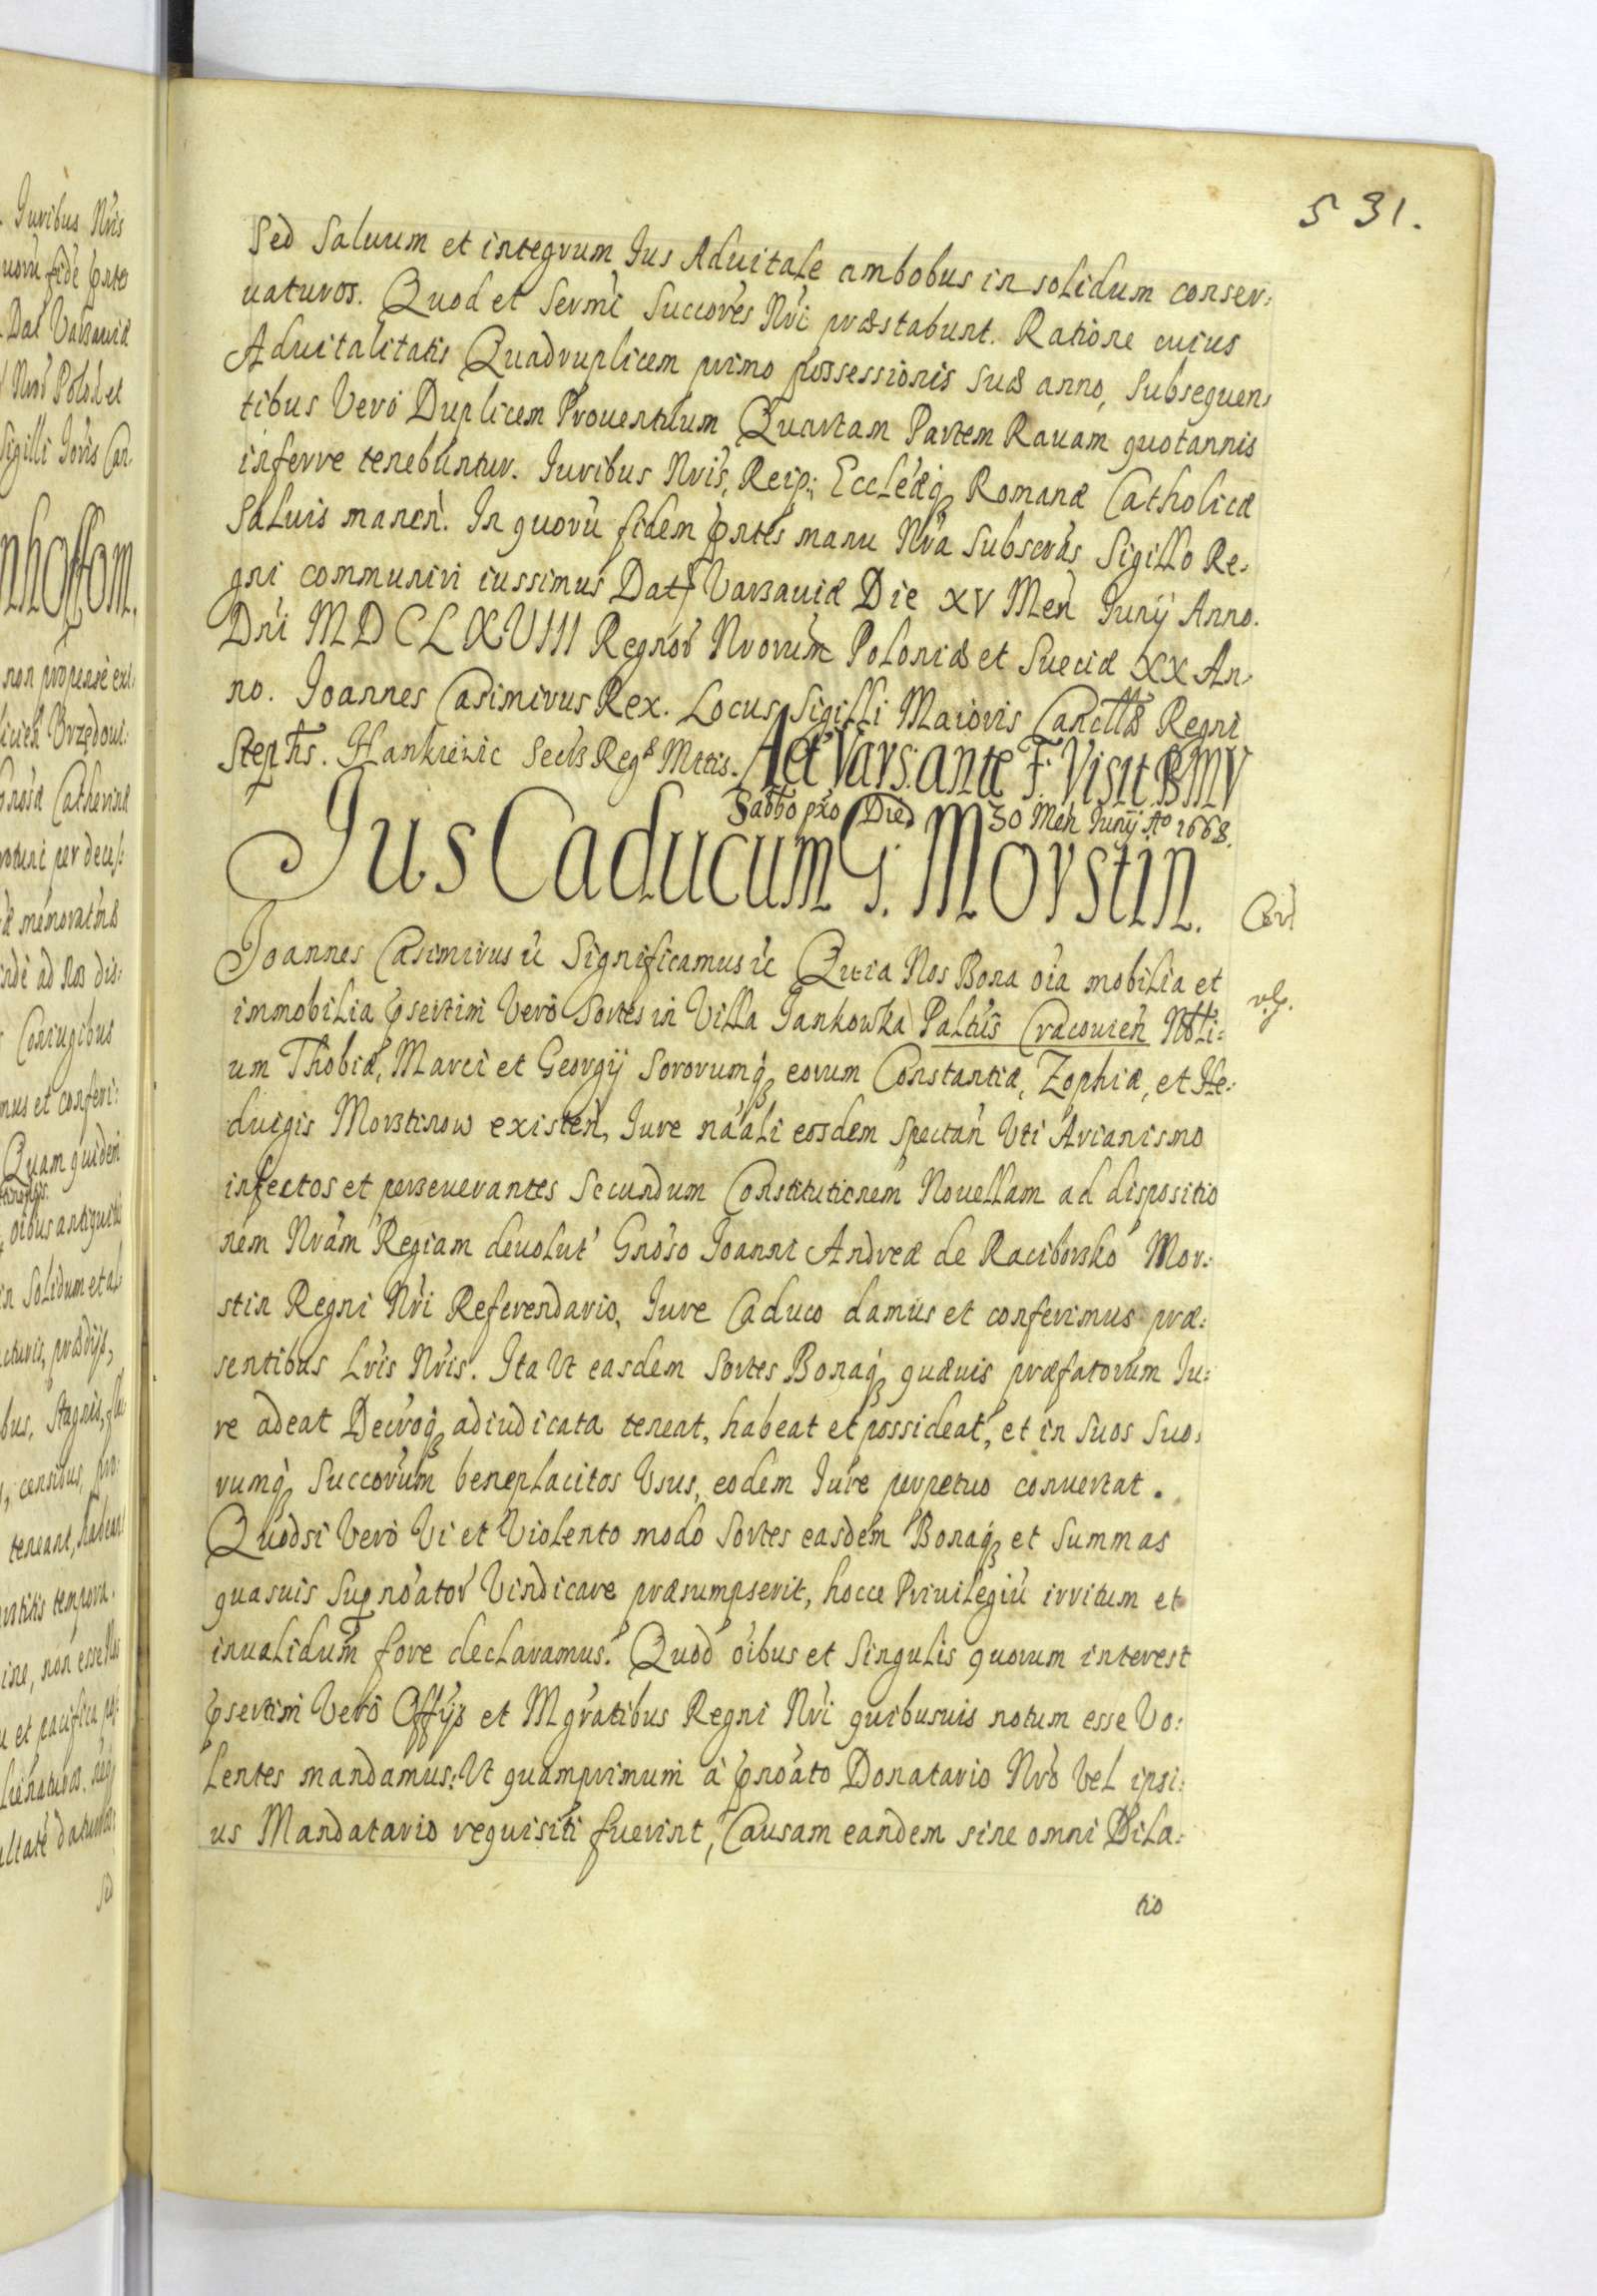 531.
Sed Saluum et integrum Jus Aduitale ambobus in solidum conser:
uaturos. Quod et Sermi Succores Nri præstabunt. Ratione cuius
Aduitalitatis Quadruplicem primo possessionis suæ anno, subsequen:
tibus Vero Duplicem Prouentuum Quartam Partem Rauam quotannis
inferre tenebuntur. Juribus Nris, Reip: Eccleæq Romanæ Catholicæ
Saluis manen. In quoru fidem pntes manu Nra Subscras Sigillo Re:
gni communiri iussimus Dat Varsauiæ Die XV Men Junij Anno.
Dni MDCLXVIII Regnor Nrorum Poloniæ et Sueciæ XX An:
no. Joannes Casimirus Rex. Locus Sigilli Maioris Cancllæ Regni
Stephs. Hankiewic Secrs Regæ Mttis. Act Vars: ante F. Visit BMV
Sabbo pro Die 30 Men Junij Ao 1668.
Jus Caducum G. Morstin.
Joannes Casimirus ic Significamus ic Quia Nos Bona oia mobilia et
immobilia psertim Vero Sortes in Villa Jankowka Paltus Cracouien Nbli:
um Thobiæ, Marci et Georgij Sororumq eorum Constantiæ, Zophiæ, et He:
duigis Morstinow existen, Jure naali eosdem spectan Uti Arianismo
infectos et perseuerantes Secundum Constitutionem Nouellam ad dispositio
nem Nram Regiam deuolut Gnoso Joanni Andreæ de Raciborsko Mor:
stin Regni Nri Referendario, Jure Caduco damus et conferimus præ:
sentibus Lris Nris. Ita Ut easdem Sortes Bonaq quæuis præfatorum Ju:
re adeat Decroq adiudicata teneat, habeat et possideat, et in Suos Suo:
rumq Succorum beneplacitos Usus, eodem Jure perpetuo conuertat.
Quodsi Vero Vi et Violento modo Sortes easdem Bonaq et Summas
quasuis Supnoator Vindicare præsumpserit, hocce Priuilegiu irritum et
inualidum fore declaramus. Quod oibus et Singulis quorum interest
psertim Vero Offijs et Mgratibus Regni Nri quibusuis notum esse Vo:
lentes mandamus: Ut quamprimum a pnoato Donatario Nro Vel ipsi:
us Mandatario requisiti fuerint, Causam eandem sine omni Dila:
tio